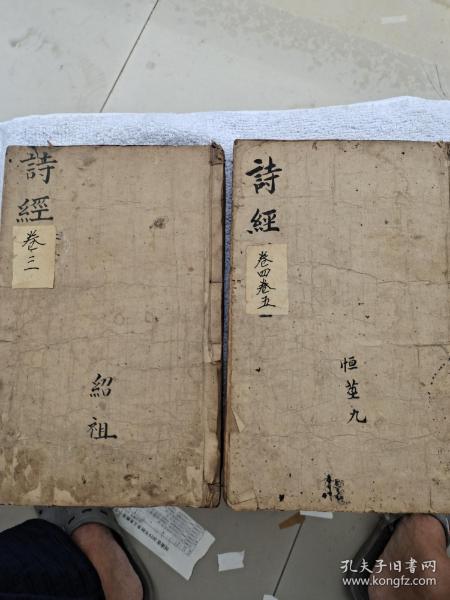 詩經
卷三
紹祖
詩經
卷四卷五
恒
九
孔夫子旧书网
www.kongfz.com